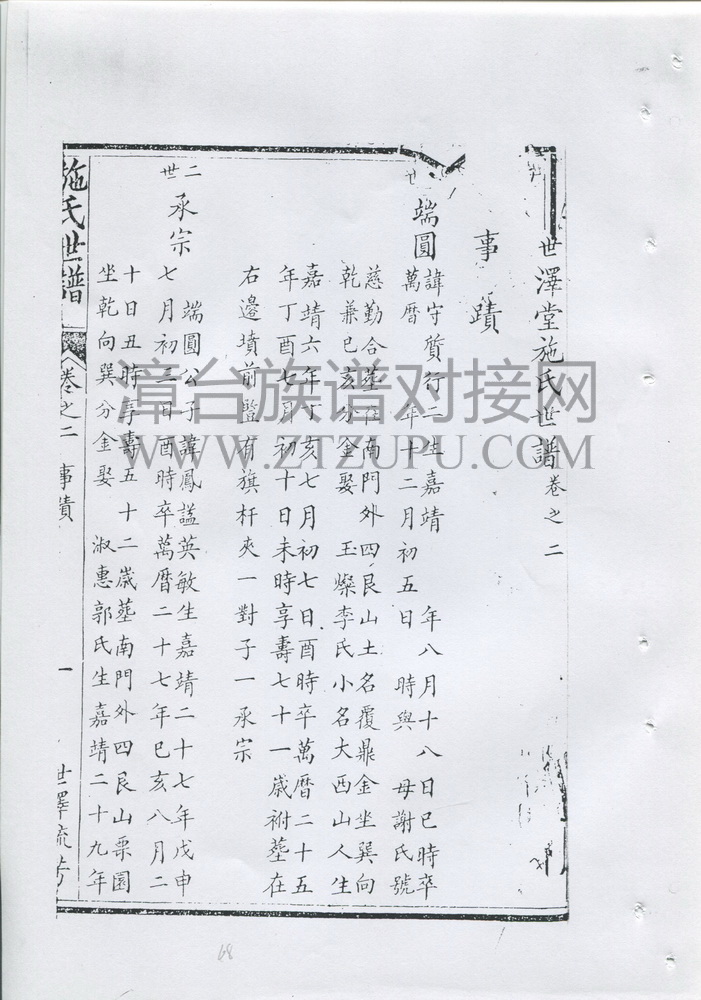 世澤堂施氏世譜卷之二
事蹟
世
端圓
諱守質行二生嘉靖 年八月十八日巳時卒
萬曆 年十二月初五日 時與 母謝氏號
慈勤合葬在南門外四艮山土名覆鼎金坐巽向
乾兼巳亥分金娶 玉燦李氏小名大西山人生
嘉靖六年丁亥七月初七日酉時卒萬曆二十五
年丁酉七月初十日未時享壽七十一歲祔葬在
右邊墳前豎有旗杆夾一對子一承宗
二世
承宗
端圓公子諱鳳謚英敏生嘉靖二十七年戊申
七月初三日酉時卒萬曆二十七年巳亥八月二
十日丑時享壽五十二歲葬南門外四艮山栗園
坐乾向巽分金娶 淑惠郭氏生嘉靖二十九年
施氏世譜
卷之二 事蹟
一
世澤流芳
漳台族谱对接网
WWW.ZTZUPU.COM
68